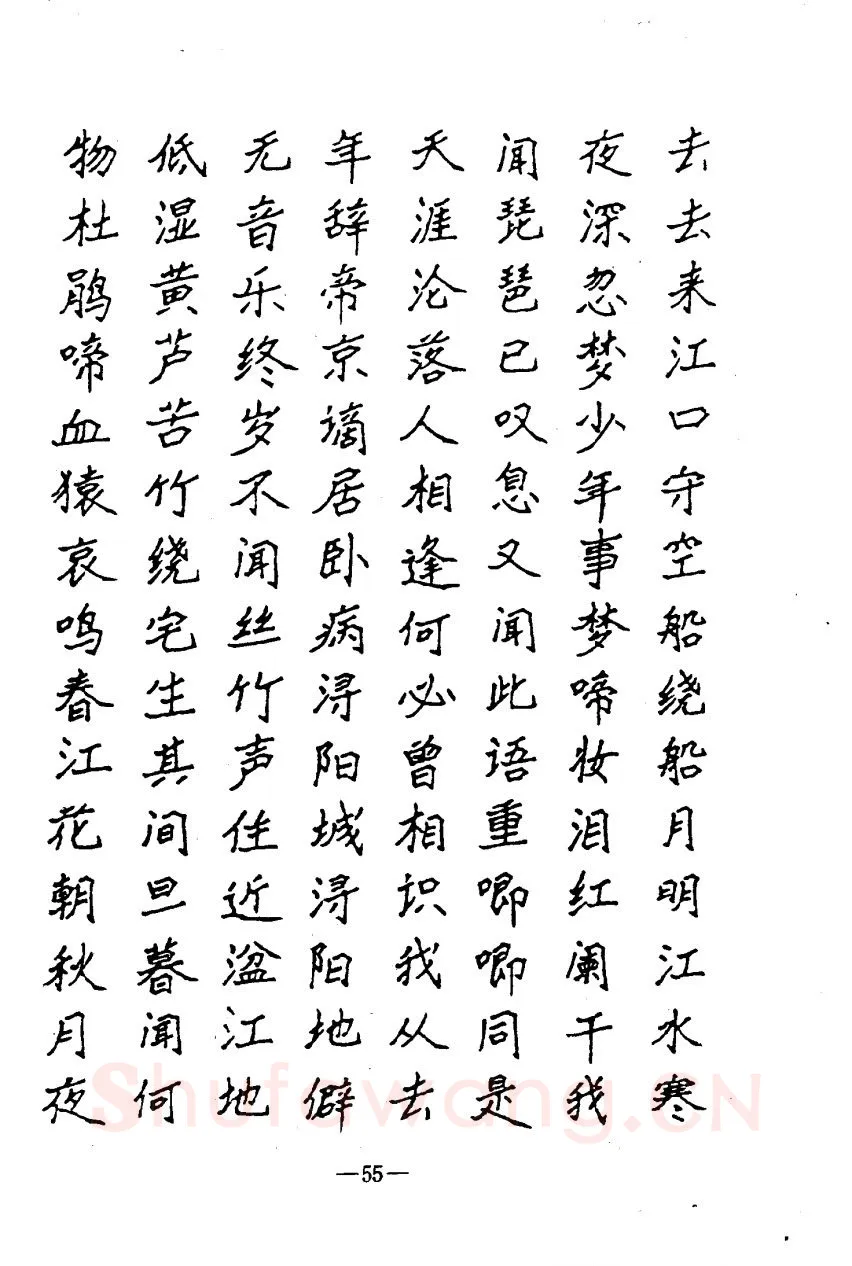 去去来江口守空船绕船月明江水寒
夜深忽梦少年事梦啼妆泪红阑干我
闻琵琶已叹息又闻此语重唧唧同是
天涯沦落人相逢何必曾相识我从去
年辞帝京谪居卧病浔阳城浔阳地僻
无音乐终岁不闻丝竹声住近湓江地
低湿黄芦苦竹绕宅生其间旦暮闻何
物杜鹃啼血猿哀鸣春江花朝秋月夜
—55—
Shufawang.CN